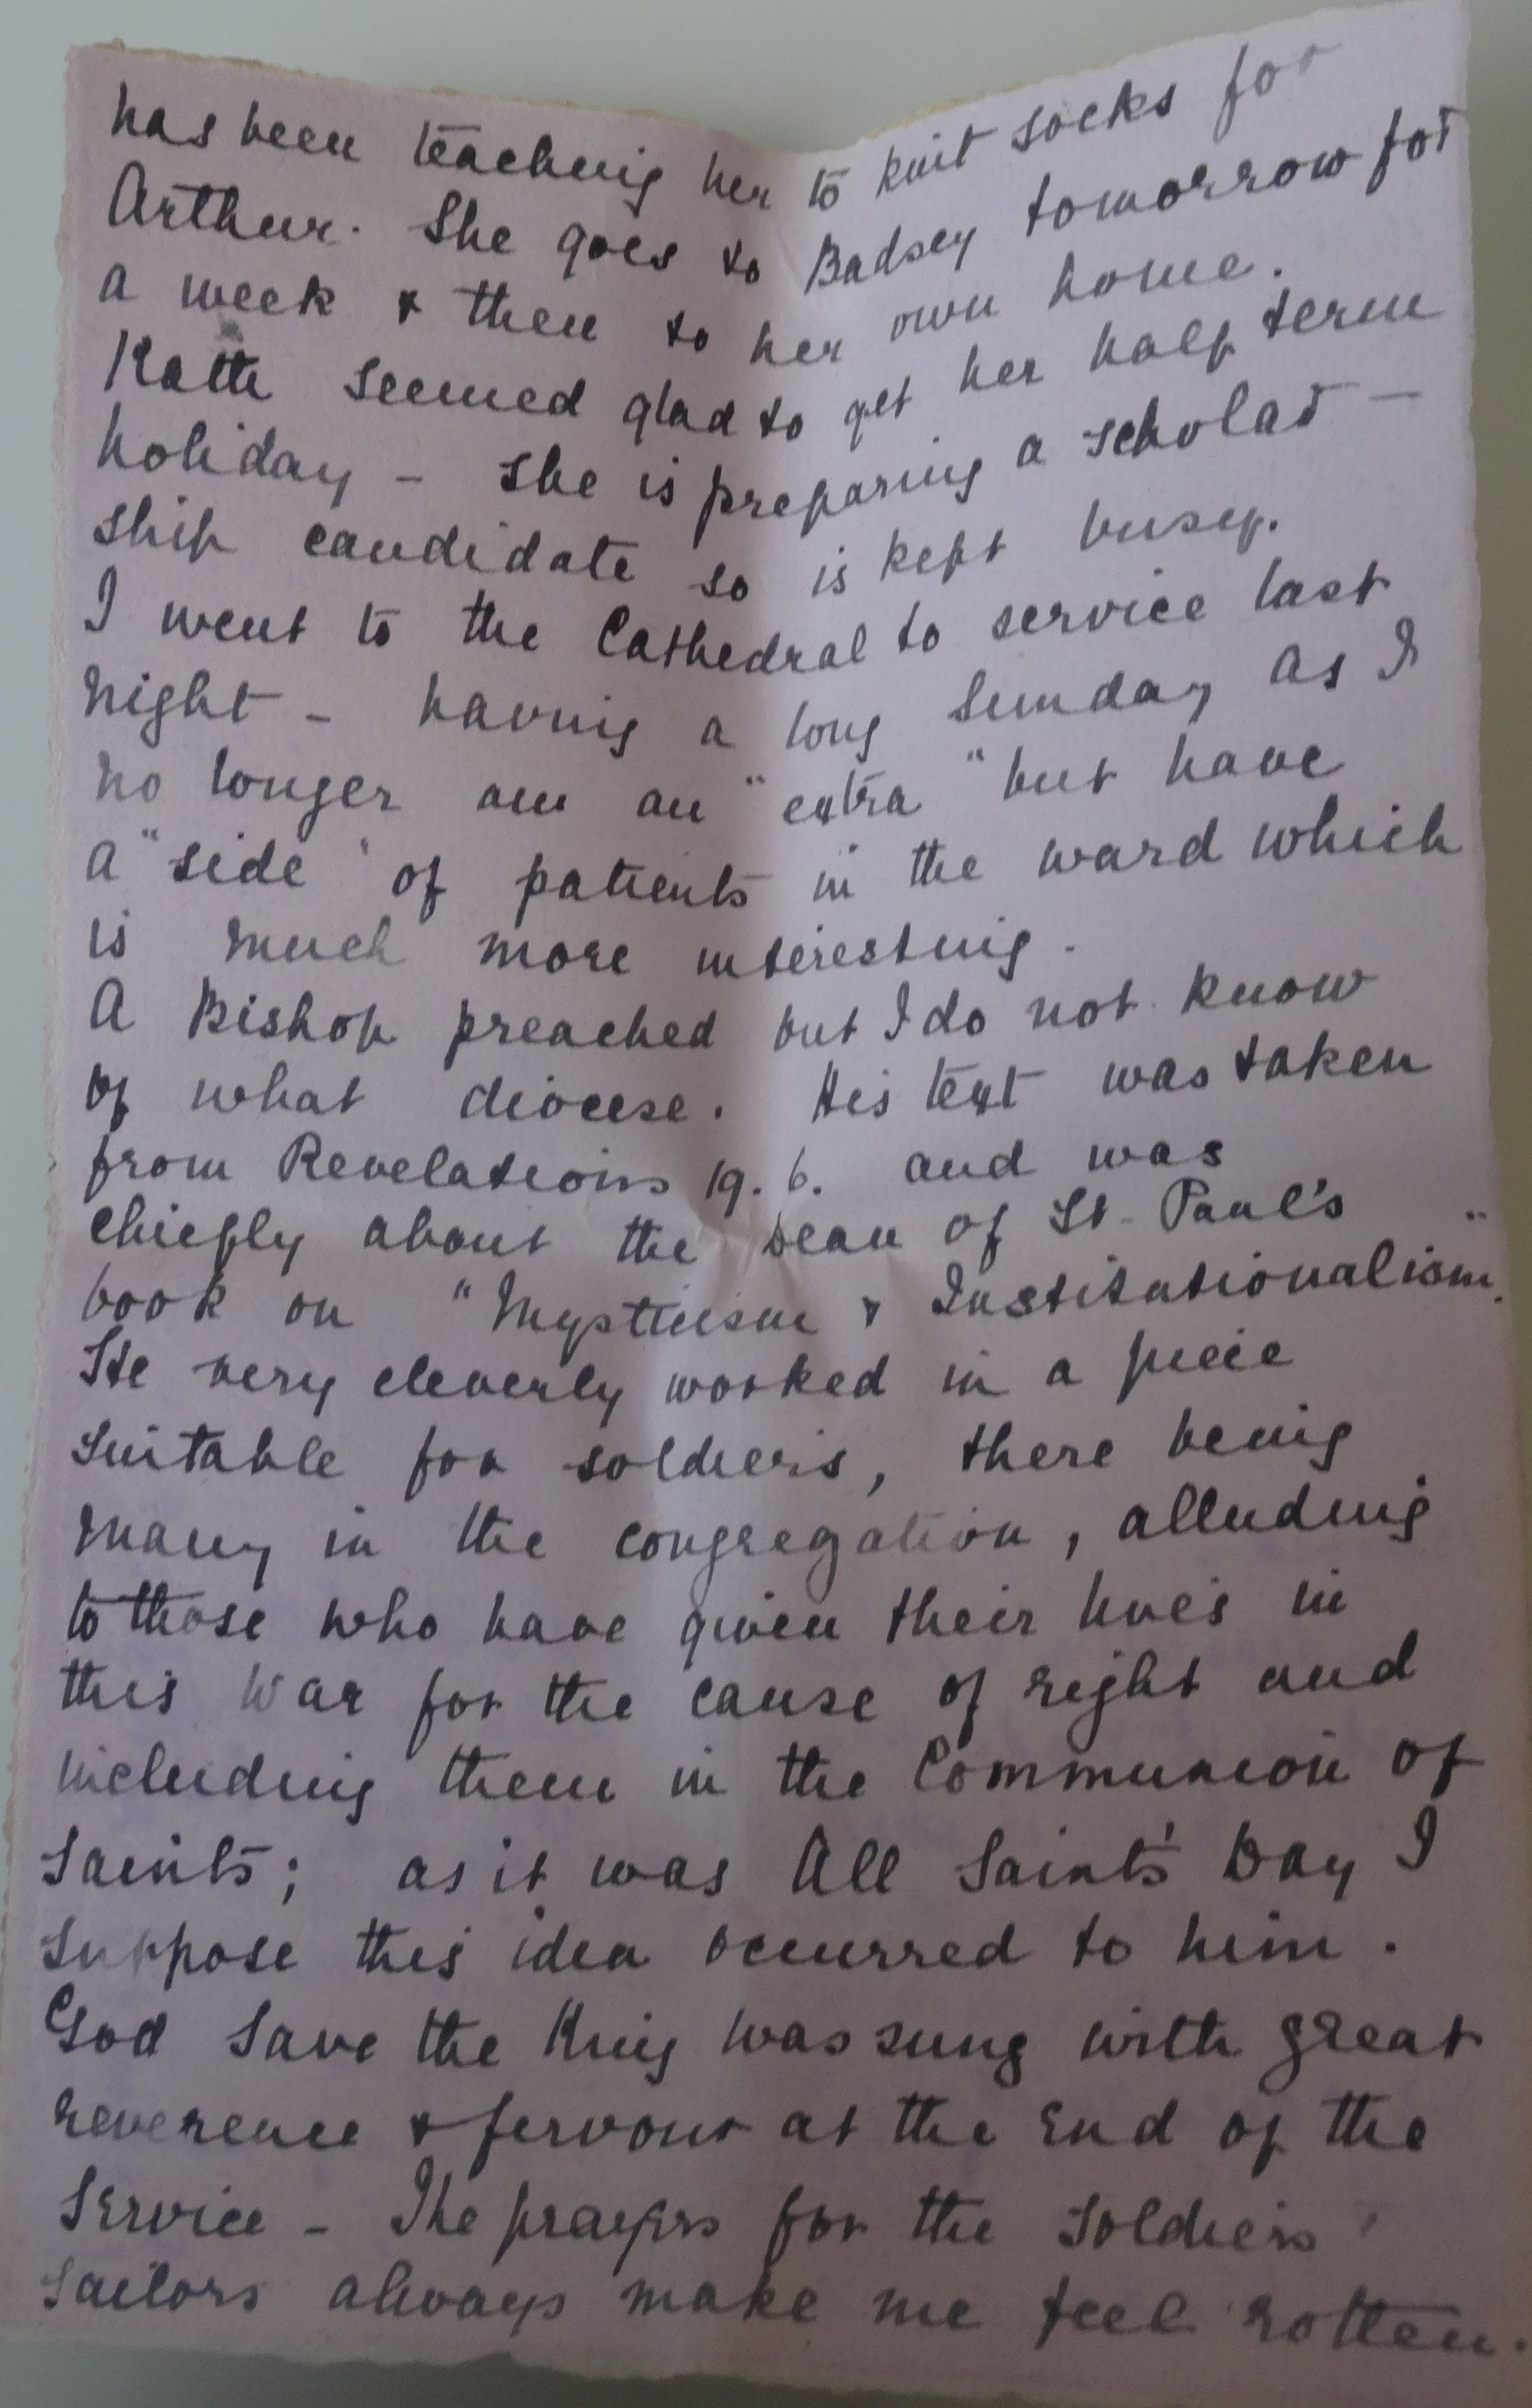 has been teaching her to knit socks for
Arthur. She goes to Badsey tomorrow for
a week & then to her own home.
Katie seemed glad to get her half term
holiday - she is preparing a scholar -
ship candidate so is kept busy.
I went to the Cathedral to service last
night - having a long Sunday as I
no longer am an "extra" but have
a "side" of patients in the ward which
is much more interesting.
A Bishop preached but I do not know
of what diocese. His text was taken
from Revelations 19. 6. and was
chiefly about the Dean of St. Paul's
book on "Mysticism & Institutionalism".
He very cleverly worked in a piece
suitable for soldiers, there being
many in the congregation, alluding
to those who have given their lives in
this war for the cause of right and
including them in the Communion of
Saints; as it was All Saint's Day I
suppose this idea occurred to him.
God Save the King was sung with great
reverence & fervour at the end of the
service - The prayers for the soldiers
sailors always make me feel rotten.